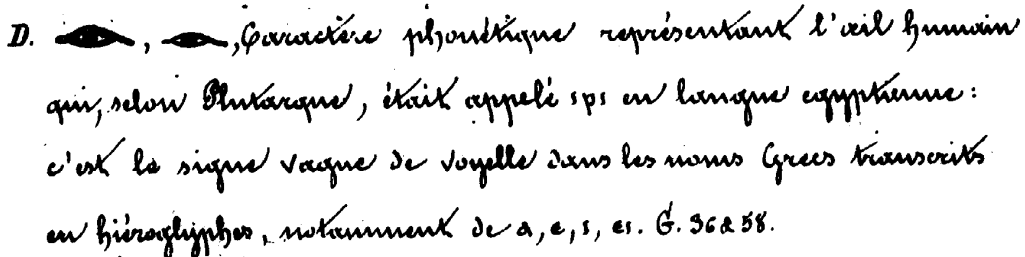 D. 𓁹, 𓂋, Caractère phonétique représentant l'œil humain
qui, selon Plutarque, était appelé ιρι en langue egyptienne:
c'est le signe vague de voyelle dans les noms Grecs transcrits
en hiéroglyphes, notamment de α, ε, ι, ει. G. 36 & 58.